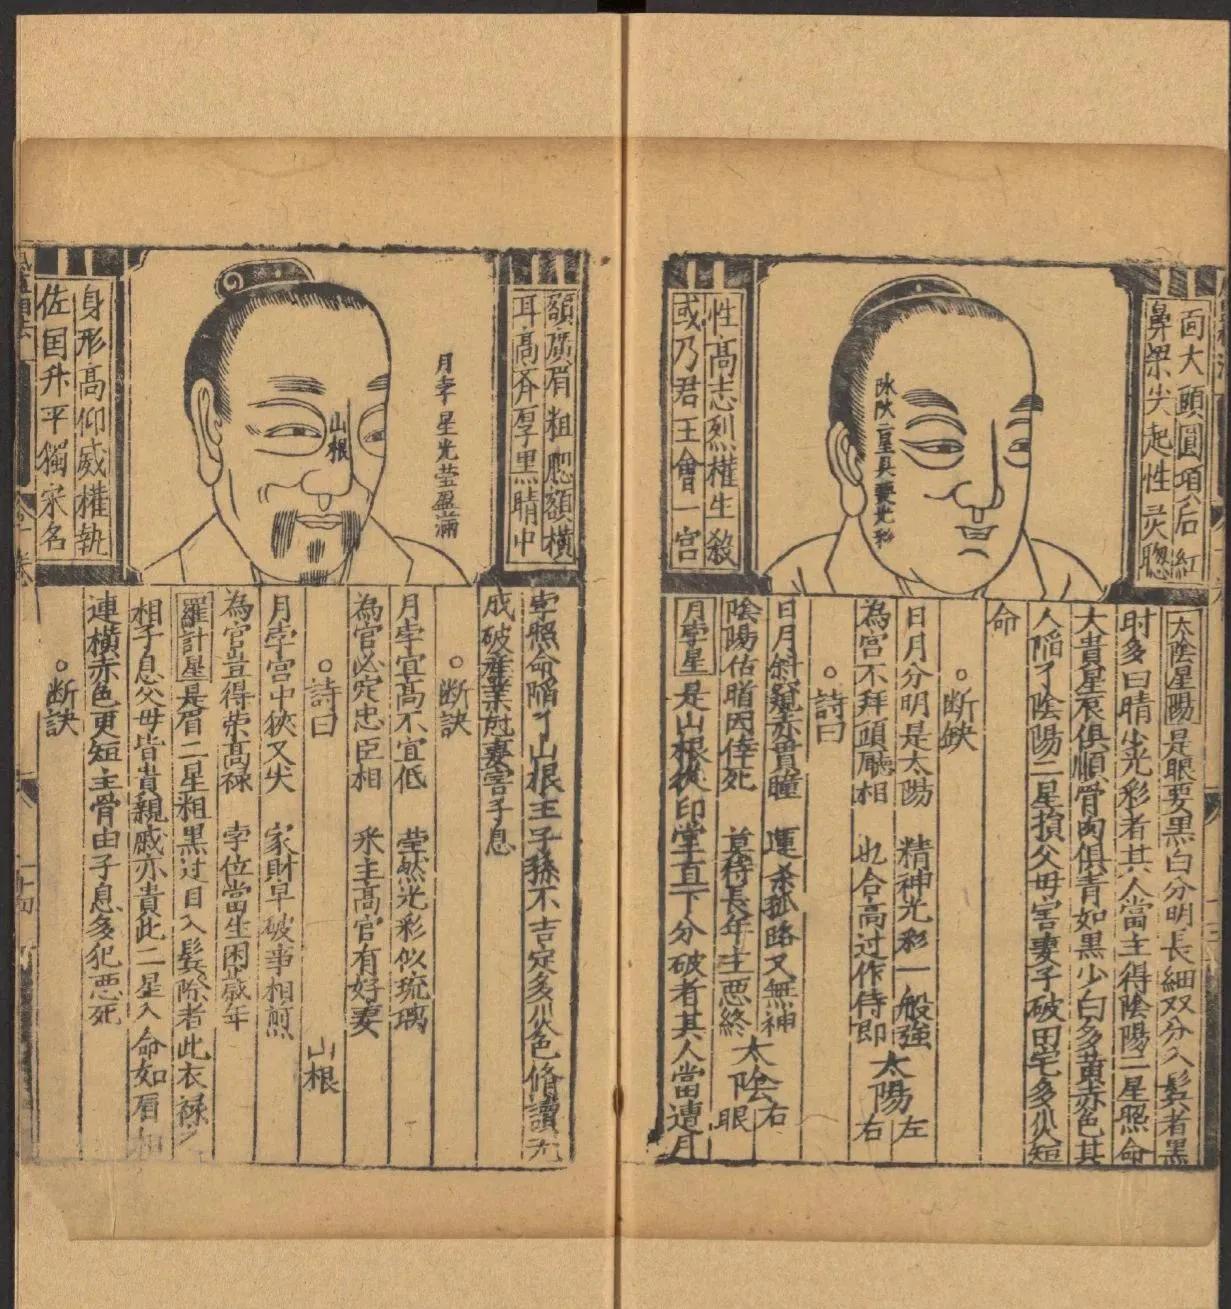 面大頭圓項后紅
鼻梁尖起性灵聰
性高志烈權生殺
或乃君王會一宮
㕫㕫二星具要光彩
太陰星陽是眼要黑白分明長細双分入鬓者黑
时多白睛少光彩者其人當主得陰陽二星照命
大貴星辰俱順骨肉俱青如黑少白多黄赤色其
人陷了陰陽二星損父母害妻子破田宅多灾短
命
○断訣
日月分明是太陽 精神光彩一般強 太陽左
為官不拜頭廳相 也合高过作侍郎 右
○詩曰
日月斜窺赤貫瞳 運末孤路又無神 太陰右
陰陽佑暗因倖死 莫待長年主悪終 眼
月孛星是山根從印堂直下分破者其人當遭月
額广眉粗腮額橫
耳高齐厚黑睛中
月孛星光莹盈滿
山根
身形高仰威權執
佐国升平獨宋名
孛照命陷了山根主子孫不吉定多灾色脩讀无
成破產業尅妻害子息
○断訣
月孛宜高不宜低 莹然光彩似琉璃
為官必定忠臣相 釆主高官有好妻
○詩曰 山根
月孛宮中狹又尖 家財早破事相煎
為官豈得荣高祿 孛位當生困歲年
羅計星是眉二星粗黑过目入鬓除者此衣禄
相子息父母皆貴親戚亦貴此二星入命如眉相
連橫赤色更短主骨由子息多犯悪死
○断訣